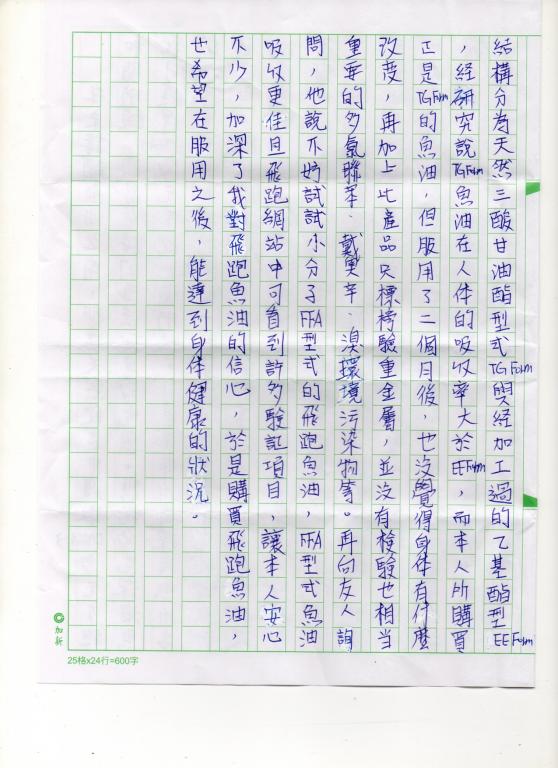 結構分為天然三酸甘油酯型式TG Form與経加工過的乙基酯型EE Form
，経研究說TG Form魚油在人体的吸收率大於EE Form，而本人所購買
正是TG Form的魚油，但服用了二個月後，也沒覺得身体有什麼
改变，再加上此產品只標榜驗重金屬，並没有檢驗也相当
重要的多氯聯苯、戴奧辛、溴環境污染物等。再向友人詢
問，他說不妨試試小分子FFA型式的飛跑魚油，FFA型式魚油
吸收更佳且飛跑網站中可看到許多驗証項目，讓本人安心
不少，加深了我對飛跑魚油的信心，於是購買飛跑魚油，
也希望在服用之後，能達到身体健康的狀況。
加新
25格x24行=600字